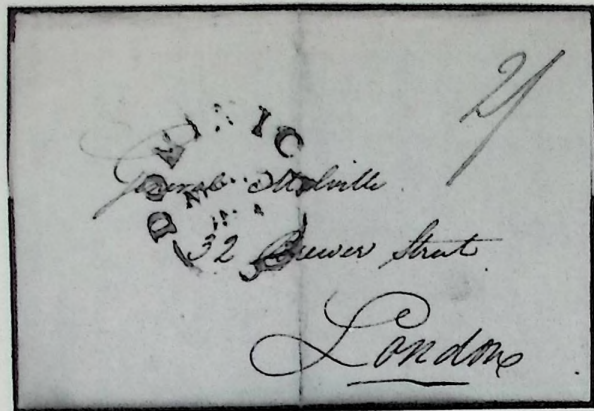 2/
DOMINICA
General Melville
32 Brewer Street
London